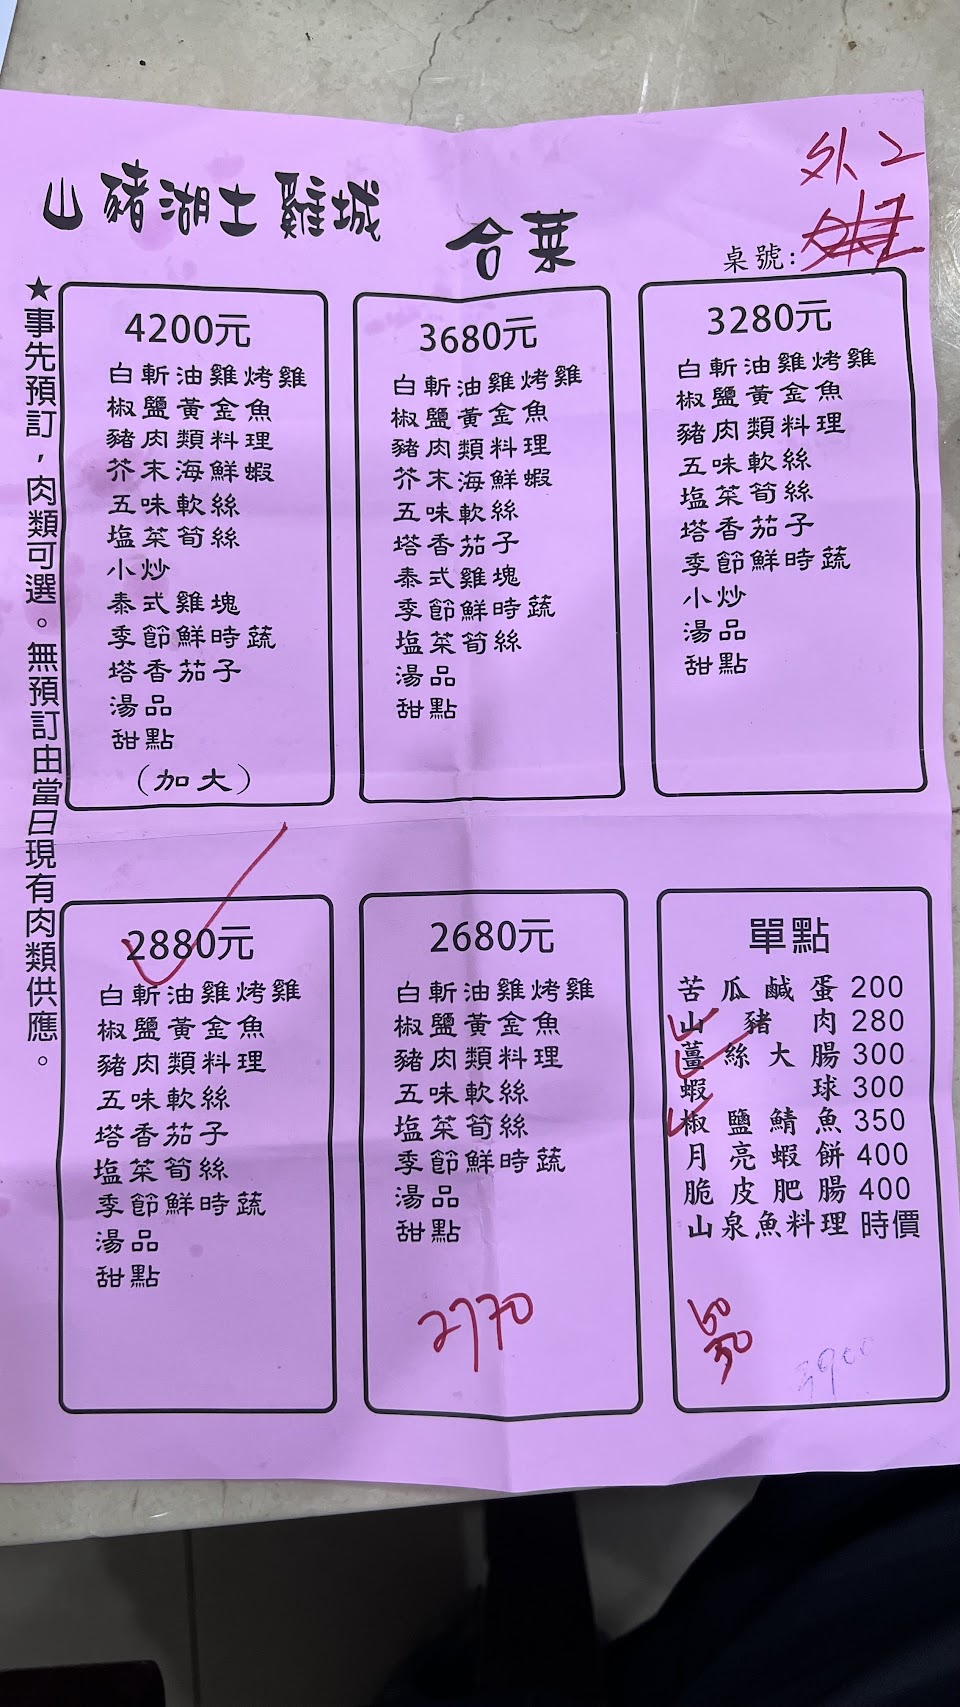 外2
山豬湖土雞城
合菜
桌號:
★事先預訂，肉類可選。無預訂由當日現有肉類供應。
4200元
白斬油雞烤雞
椒鹽黃金魚
豬肉類料理
芥末海鮮蝦
五味軟絲
塩菜筍絲
小炒
泰式雞塊
季節鮮時蔬
塔香茄子
湯品
甜點
(加大)
3680元
白斬油雞烤雞
椒鹽黃金魚
豬肉類料理
芥末海鮮蝦
五味軟絲
塔香茄子
泰式雞塊
季節鮮時蔬
塩菜筍絲
湯品
甜點
3280元
白斬油雞烤雞
椒鹽黃金魚
豬肉類料理
五味軟絲
塩菜筍絲
塔香茄子
季節鮮時蔬
小炒
湯品
甜點
2880元
白斬油雞烤雞
椒鹽黃金魚
豬肉類料理
五味軟絲
塔香茄子
塩菜筍絲
季節鮮時蔬
湯品
甜點
2680元
白斬油雞烤雞
椒鹽黃金魚
豬肉類料理
五味軟絲
塩菜筍絲
季節鮮時蔬
湯品
甜點
2770
單點
苦瓜鹹蛋 200
山豬肉 280
薑絲大腸 300
蝦球 300
椒鹽鯖魚 350
月亮蝦餅 400
脆皮肥腸 400
山泉魚料理 時價
3900